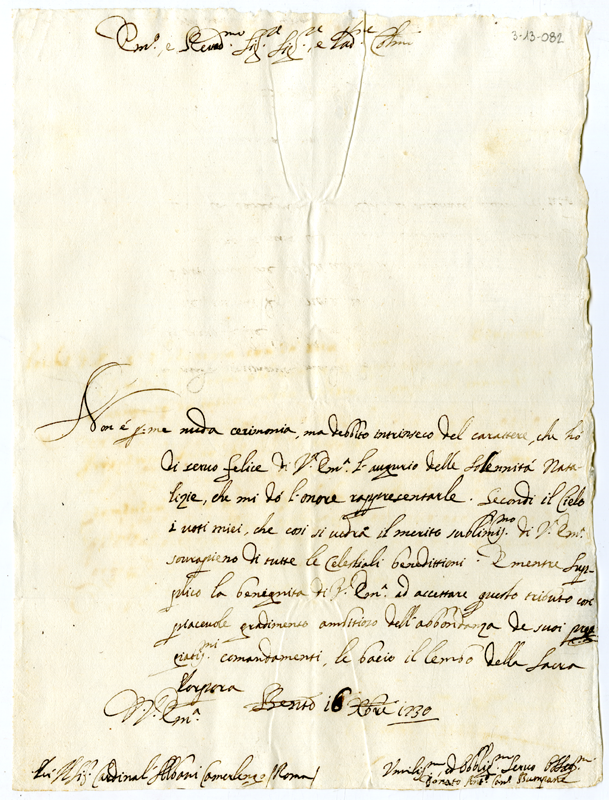 3-13-082
Em.º, e Revd.mo Sig.r Sig.r, e Pad.ne Colmo
Non é p me nuda cerimonia, ma debbito intrinseco del carattere, che hó
di servo felice di V.ª Em.ª l'augurio delle Solennitá Nata-
lizie, che mi dó l'onore rappresentarle. Secondi il Cielo
i voti miei, che cosi si vedrá il merito sublimiss.mo di V.ª Em.ª
sovrapieno di tutte le Celestiali benedittioni. E mentre sup-
plico la benegnita di V.ª Em.ª ad accettare questo tributo con
piacevole gradimento ambitioso dell'abbondanza de suoi pre-
giatis.mi comandamenti, le bacio il lembo della Sacra
Porpora
Di V.ª Em.ª
16 Xbre 1730
Sig. Cardinal' Albani Camerlengo (Roma)
Umilis.mo et Obblig.mo Servo
Donato Ant.